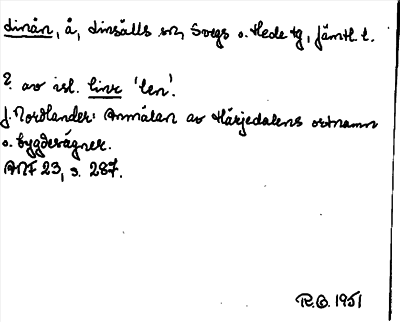 Linån, å, Linsälls sn, Svegs o. Hede tg, Jämtl. l.
? av isl. linr 'len'.
J. Nordlander: Anmälan av Härjedalens ortnamn
o. bygdesägner.
ANF 23, s. 287.
R.O. 1951